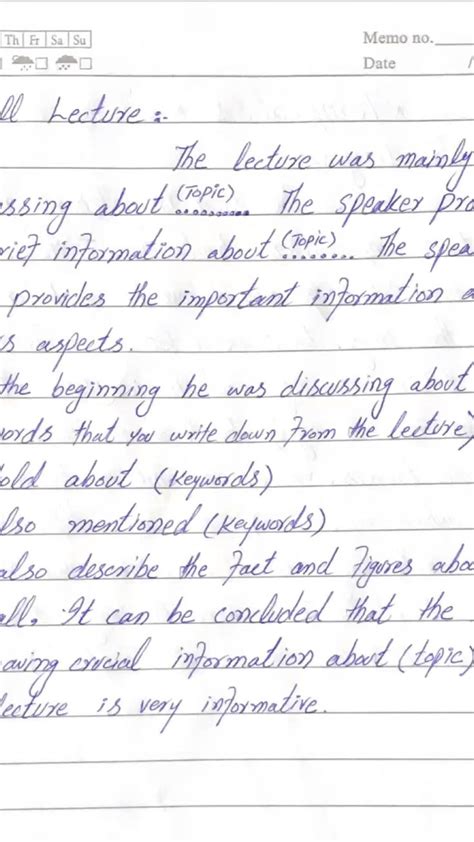 Th Fr Sa Su
Memo no.
Date /
ll Lecture :-
The lecture was mainly
ssing about (Topic) .......... The speaker pro
rief information about (Topic) ........ The spea
provides the important information a
s aspects.
the beginning he was discussing about
ords that you write down from the lecture)
old about (Keywords)
lso mentioned (Keywords)
also describe the fact and figures abo
all. It can be concluded that the
aving crucial information about (topic)
lecture is very informative.